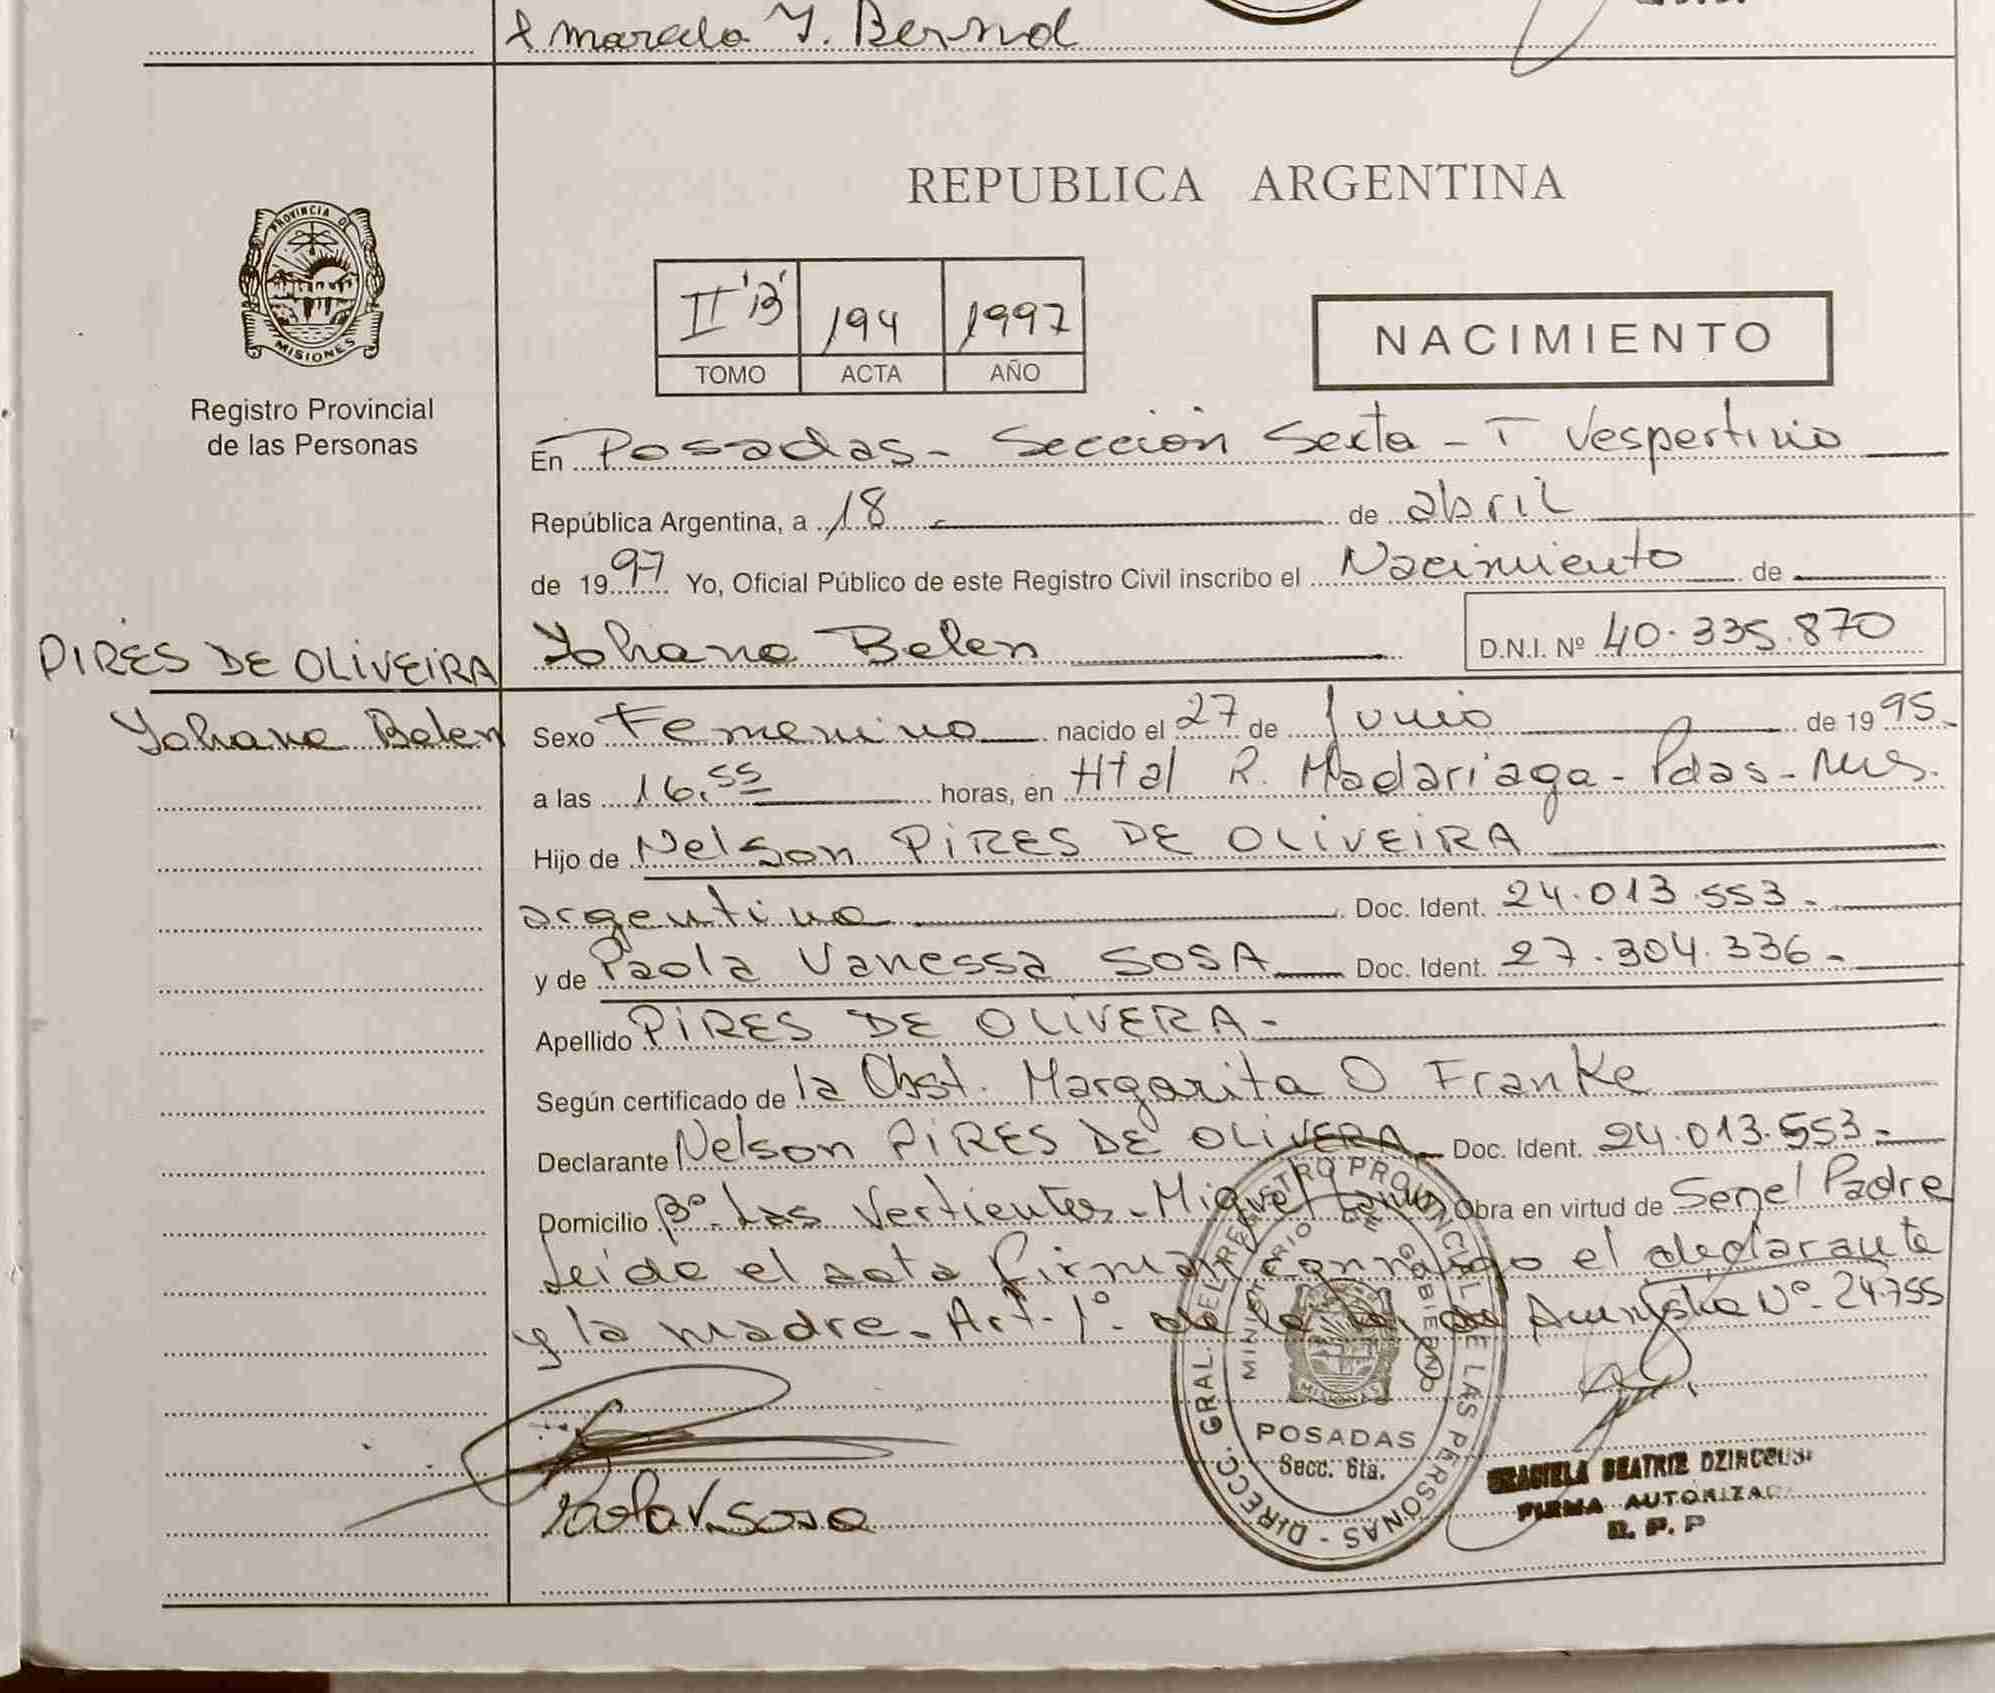 & Marcelo Y. Bernol
REPUBLICA ARGENTINA
PROVINCIA DE
MISIONES
Registro Provincial
de las Personas
II "B" 194 1997
TOMO ACTA AÑO
NACIMIENTO
En Posadas - Sección Sexta - T Vespertino
República Argentina, a 18 - de abril
de 1997 Yo, Oficial Público de este Registro Civil inscribo el Nacimiento de
PIRES DE OLIVEIRA Yohana Belen D.N.I. Nº 40.335.870
Yohana Belen Sexo Femenino nacido el 27 de Junio de 1995-
a las 16,55 horas, en Htal R. Madariaga - Pdas - Mns.
Hijo de Nelson PIRES DE OLIVEIRA
argentino Doc. Ident. 24.013.553.-
y de Paola Vanessa SOSA Doc. Ident. 27.304.336-
Apellido PIRES DE OLIVERA-
Según certificado de la Obst. Margarita O Franke
Declarante Nelson PIRES DE OLIVERA Doc. Ident. 24.013.553-
Domicilio Bº Las Vertientes - Miguel Lanus Obra en virtud de Ser el Padre
Leída el acta firman conmigo el declarante
y la madre. Art. 1º de la Ley de Amnistía Nº 24755
DIRECC. GRAL. EL REGISTRO PROVINCIAL DE LAS PERSONAS -
MINISTERIO DE GOBIERNO
MISIONES
POSADAS
Secc. 6ta.
Paola V. Sosa
GRACIELA BEATRIZ
FIRMA AUTORIZADA
R. P. P